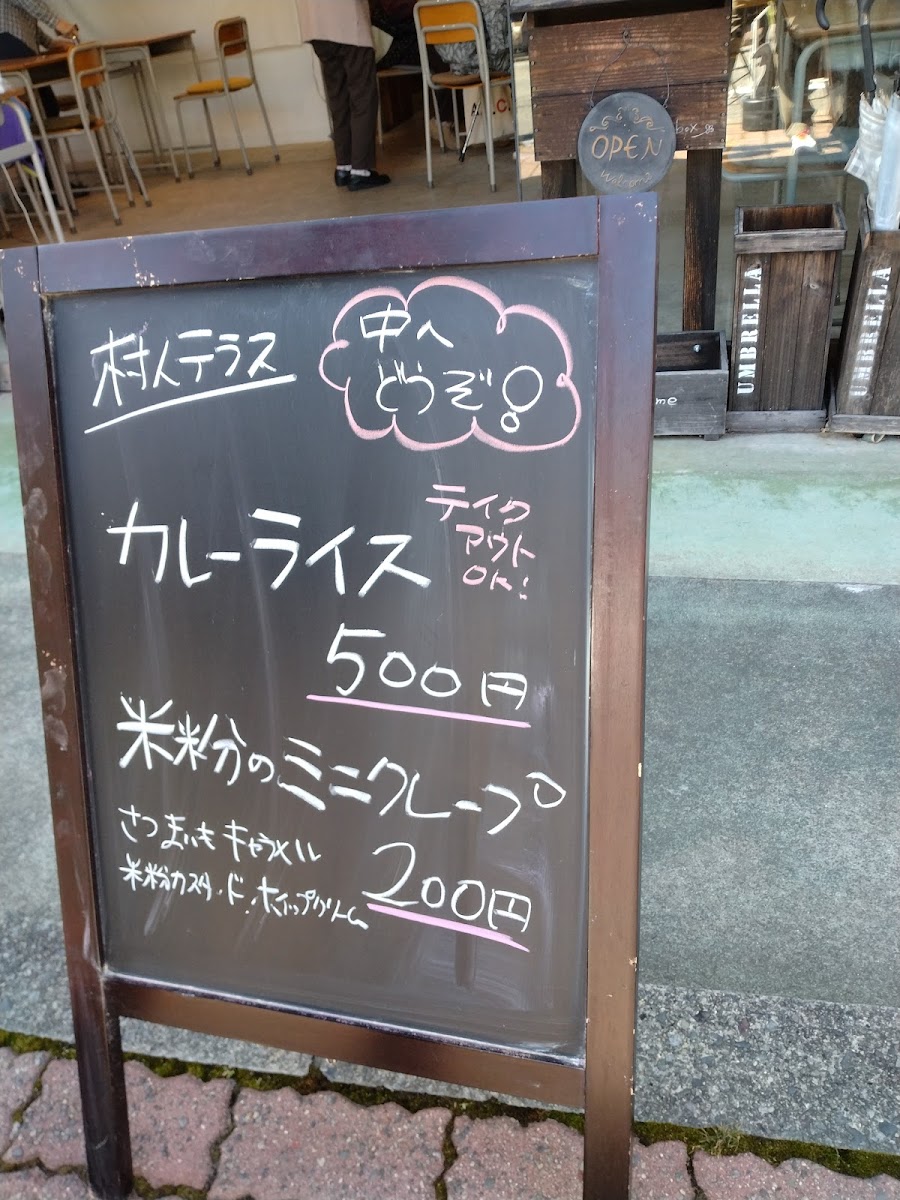 OPEN
Welcome
UMBRELLA
UMBRELLA
me
村人テラス
中へ
どうぞ!
カレーライス
テイク
アウト
OK!
500円
米粉のミニクレープ
さつまいもキャラメル
米粉カスタード・ホイップクリーム
200円